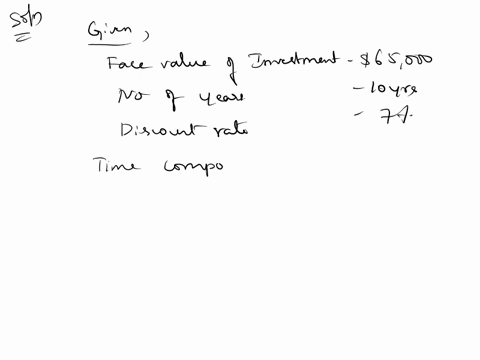 Soln
Given,
Face value of Investment - $65,000
No of years - 10yrs
Discount rate - 7%
Time compo